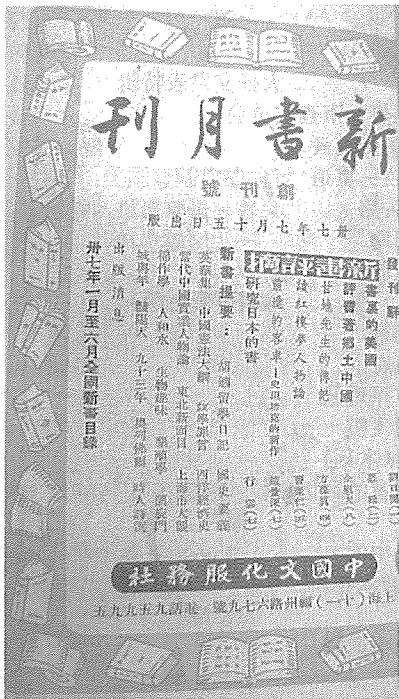 新書月刊
創刊號
卅七年七月十五日出版
發刊辭
新書評介
書裏的美國
評費著鄉土中國
甘地先生的傳記
讀紅樓夢人物論
前進的客車—史坦培克的新作
研究日本的書 行雲(七)
新書提要： 胡適留學日記 國史要義
英華集 中國憲法大綱 政學罪言 西洋經濟史
當代中國實業人物論 東北新面目 上海市大觀
創作學 人和水 生物趣味
城與年 豔陽天 九十三年
出版消息
卅七年一月至六月全國新書目錄
中國文化服務社
上海(十一)福州路六七九號 電話九五九九五